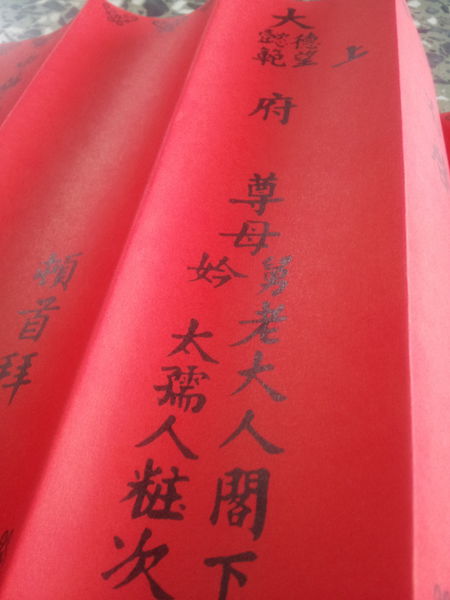 上
大
德望
懿範
府
尊母舅老大人閣下
妗太孺人粧次
頓首拜